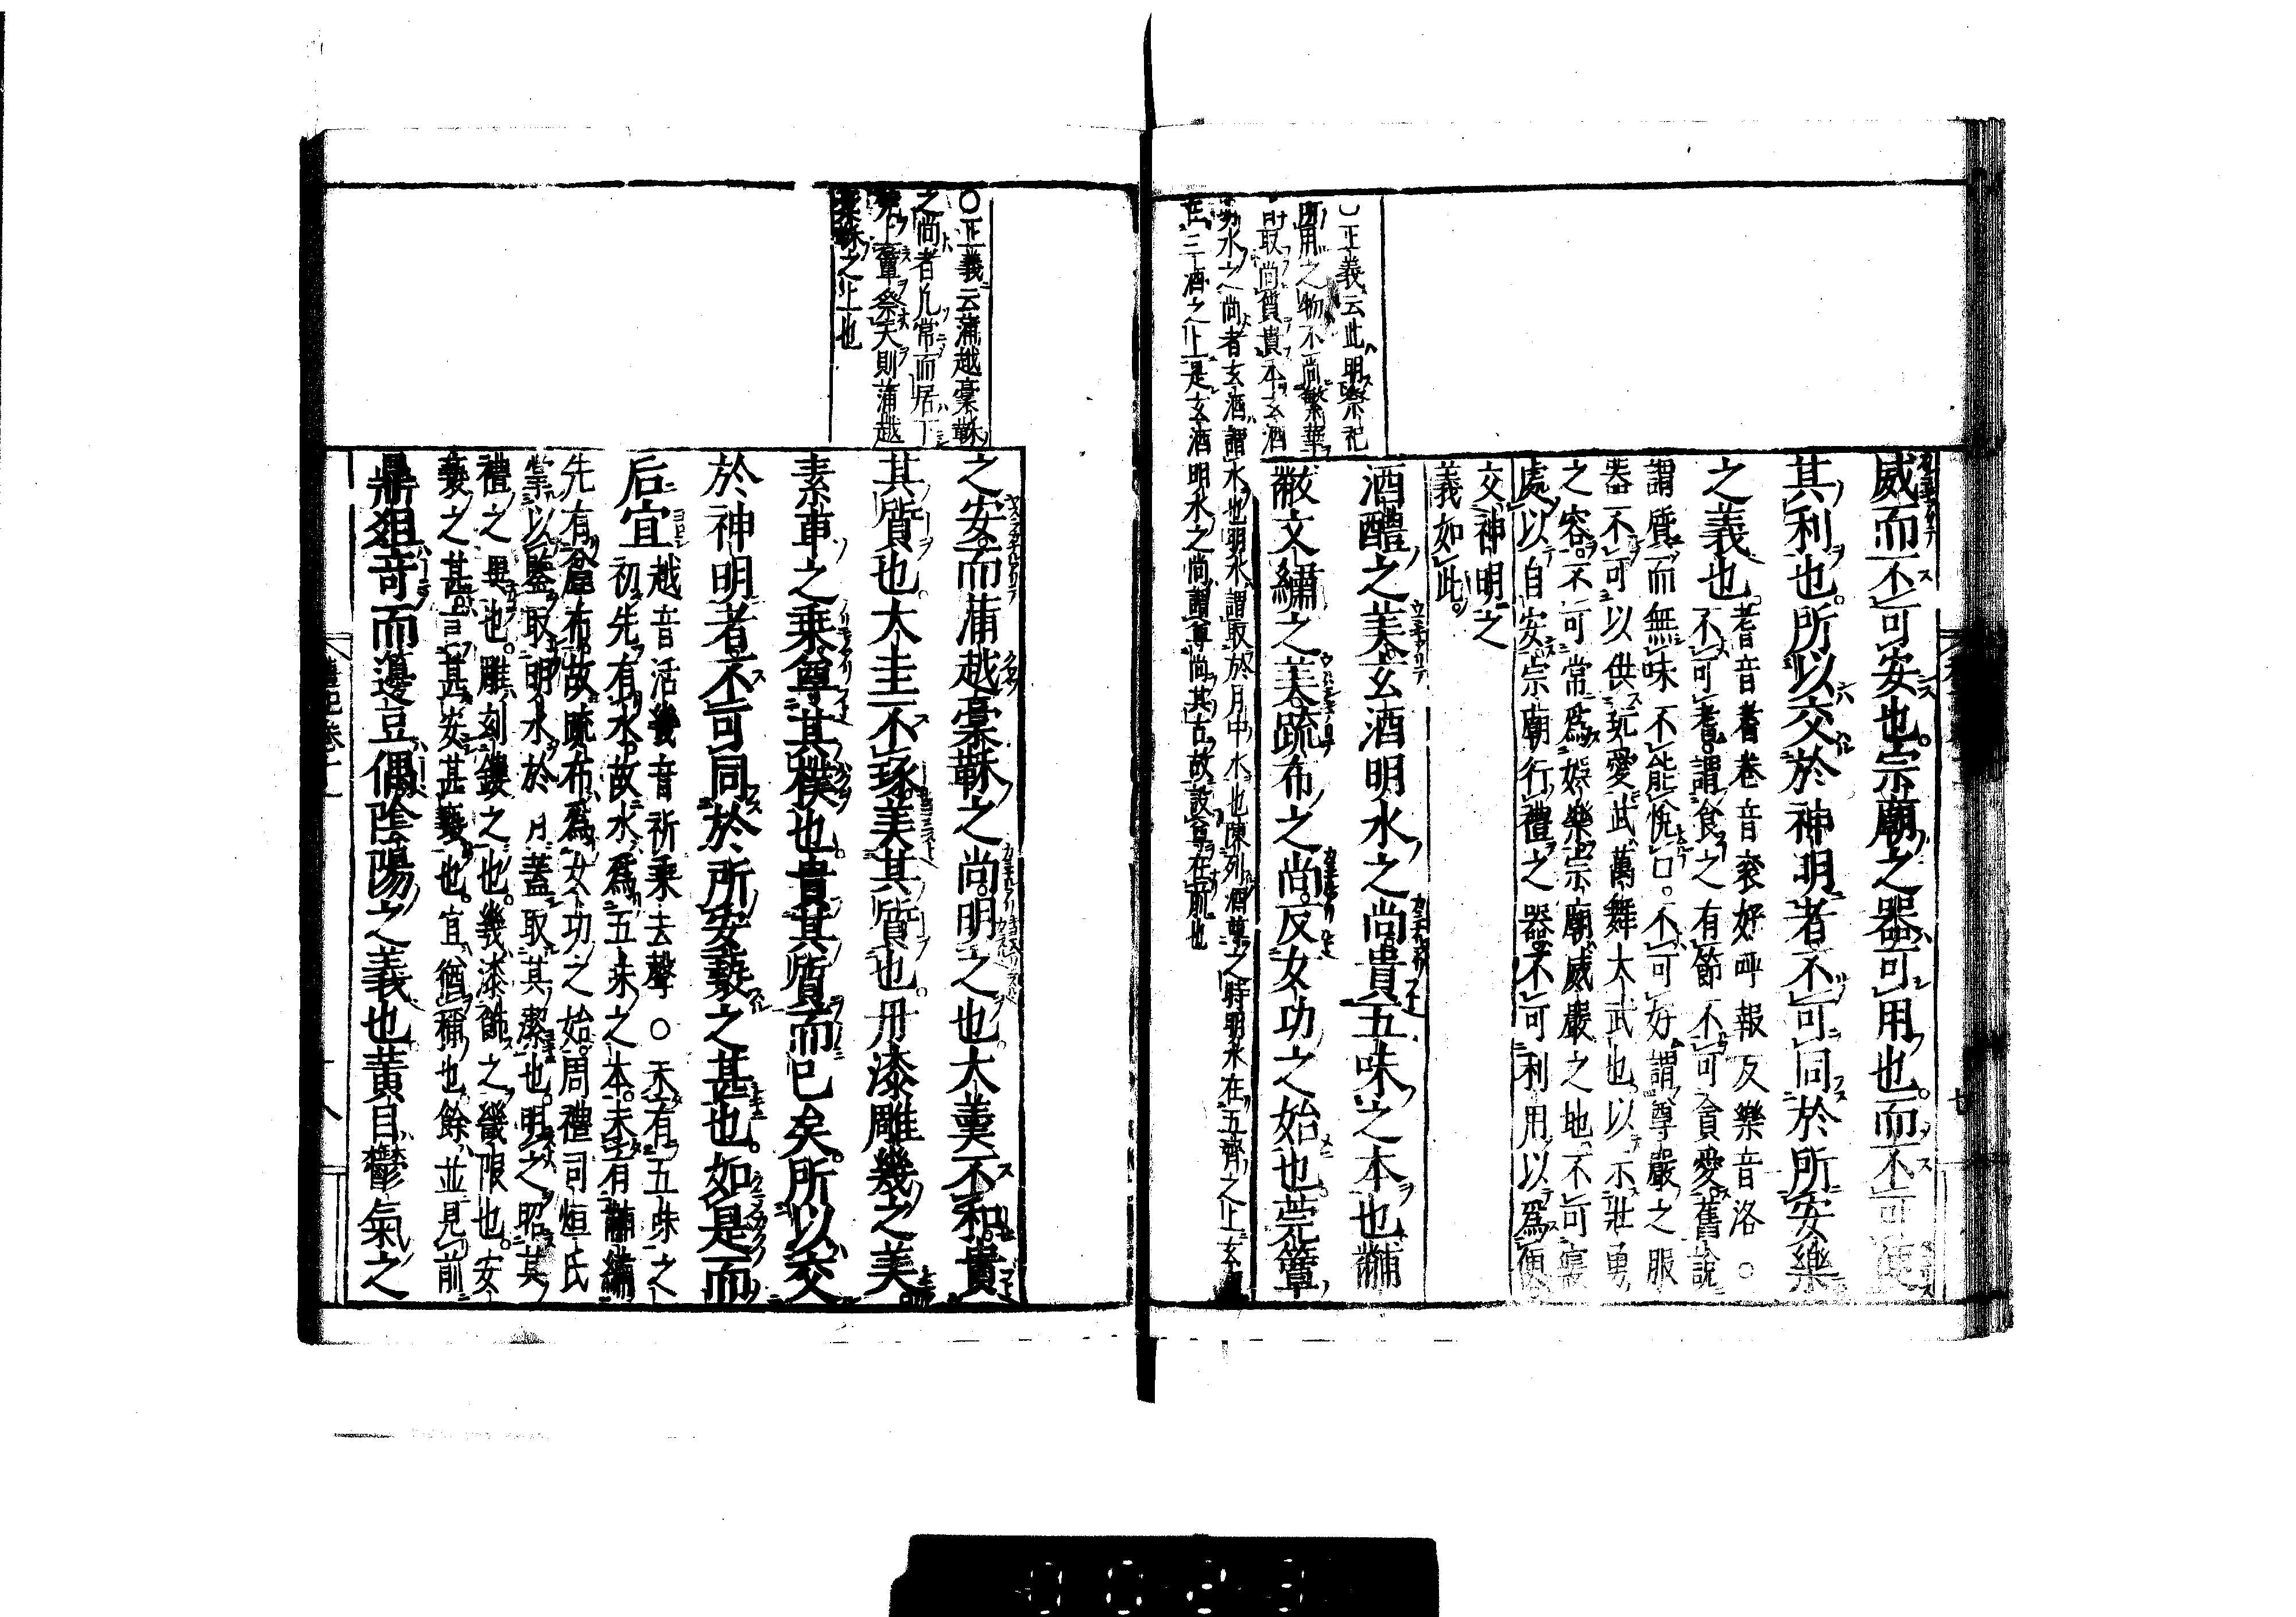 威而不可安也。宗廟之器可用也。而不可便
其利也。所以交於神明者不可同於所安樂
之義也。
耆音嗜卷音衮好呼報反樂音洛。○
不可耆。謂食之有節不可貪愛。舊說
謂質而無味不能悅口。不可好謂尊嚴之服
器不可以供玩愛武萬舞大武也以示壯勇
之容。不可常為娛樂宗廟威嚴之地不可寢
處以自安宗廟行禮之器不可利用以為便
交神明之
義如此。
酒醴之美玄酒明水之尚貴五味之本也黼
黻文繡之美疏布之尚。反女功之始也莞簟
○正義云此明祭祀
所用之物不尚繁華
所取尚質貴本玄酒
明水之尚者玄酒謂水也明水謂取於月中水也陳列酒尊之時明水在五齊之上玄
在三酒之上是玄酒明水之尚謂尊尚其古故設尊在前也
之安。而蒲越藁鞂之尚。明之也大羹不和。貴
其質也。大圭不琢。美其質也。丹漆雕幾之美
素車之乘。尊其樸也。貴其質而已矣。所以交
於神明者不可同於所安褻之甚也。如是而
后宜
越音活幾音祈乘去聲○未有五味之
初先有水故水為五味之本。未有黼繡
先有麤布。故疏布為女功之始。周禮司烜氏
掌以鑒取明水於月蓋取其潔也。明之昭其
禮之異也。雕刻鏤之也。幾漆飾之畿限也。安
褻之甚言甚安甚褻也。宜猶稱也餘並見前
鼎俎奇而籩豆偶陰陽之義也黃目鬱氣之
○正義云蒲越藁鞂
之尚者凡常而居下
莞上簟祭天則蒲越
藁鞂之上也
禮記卷十一
0023